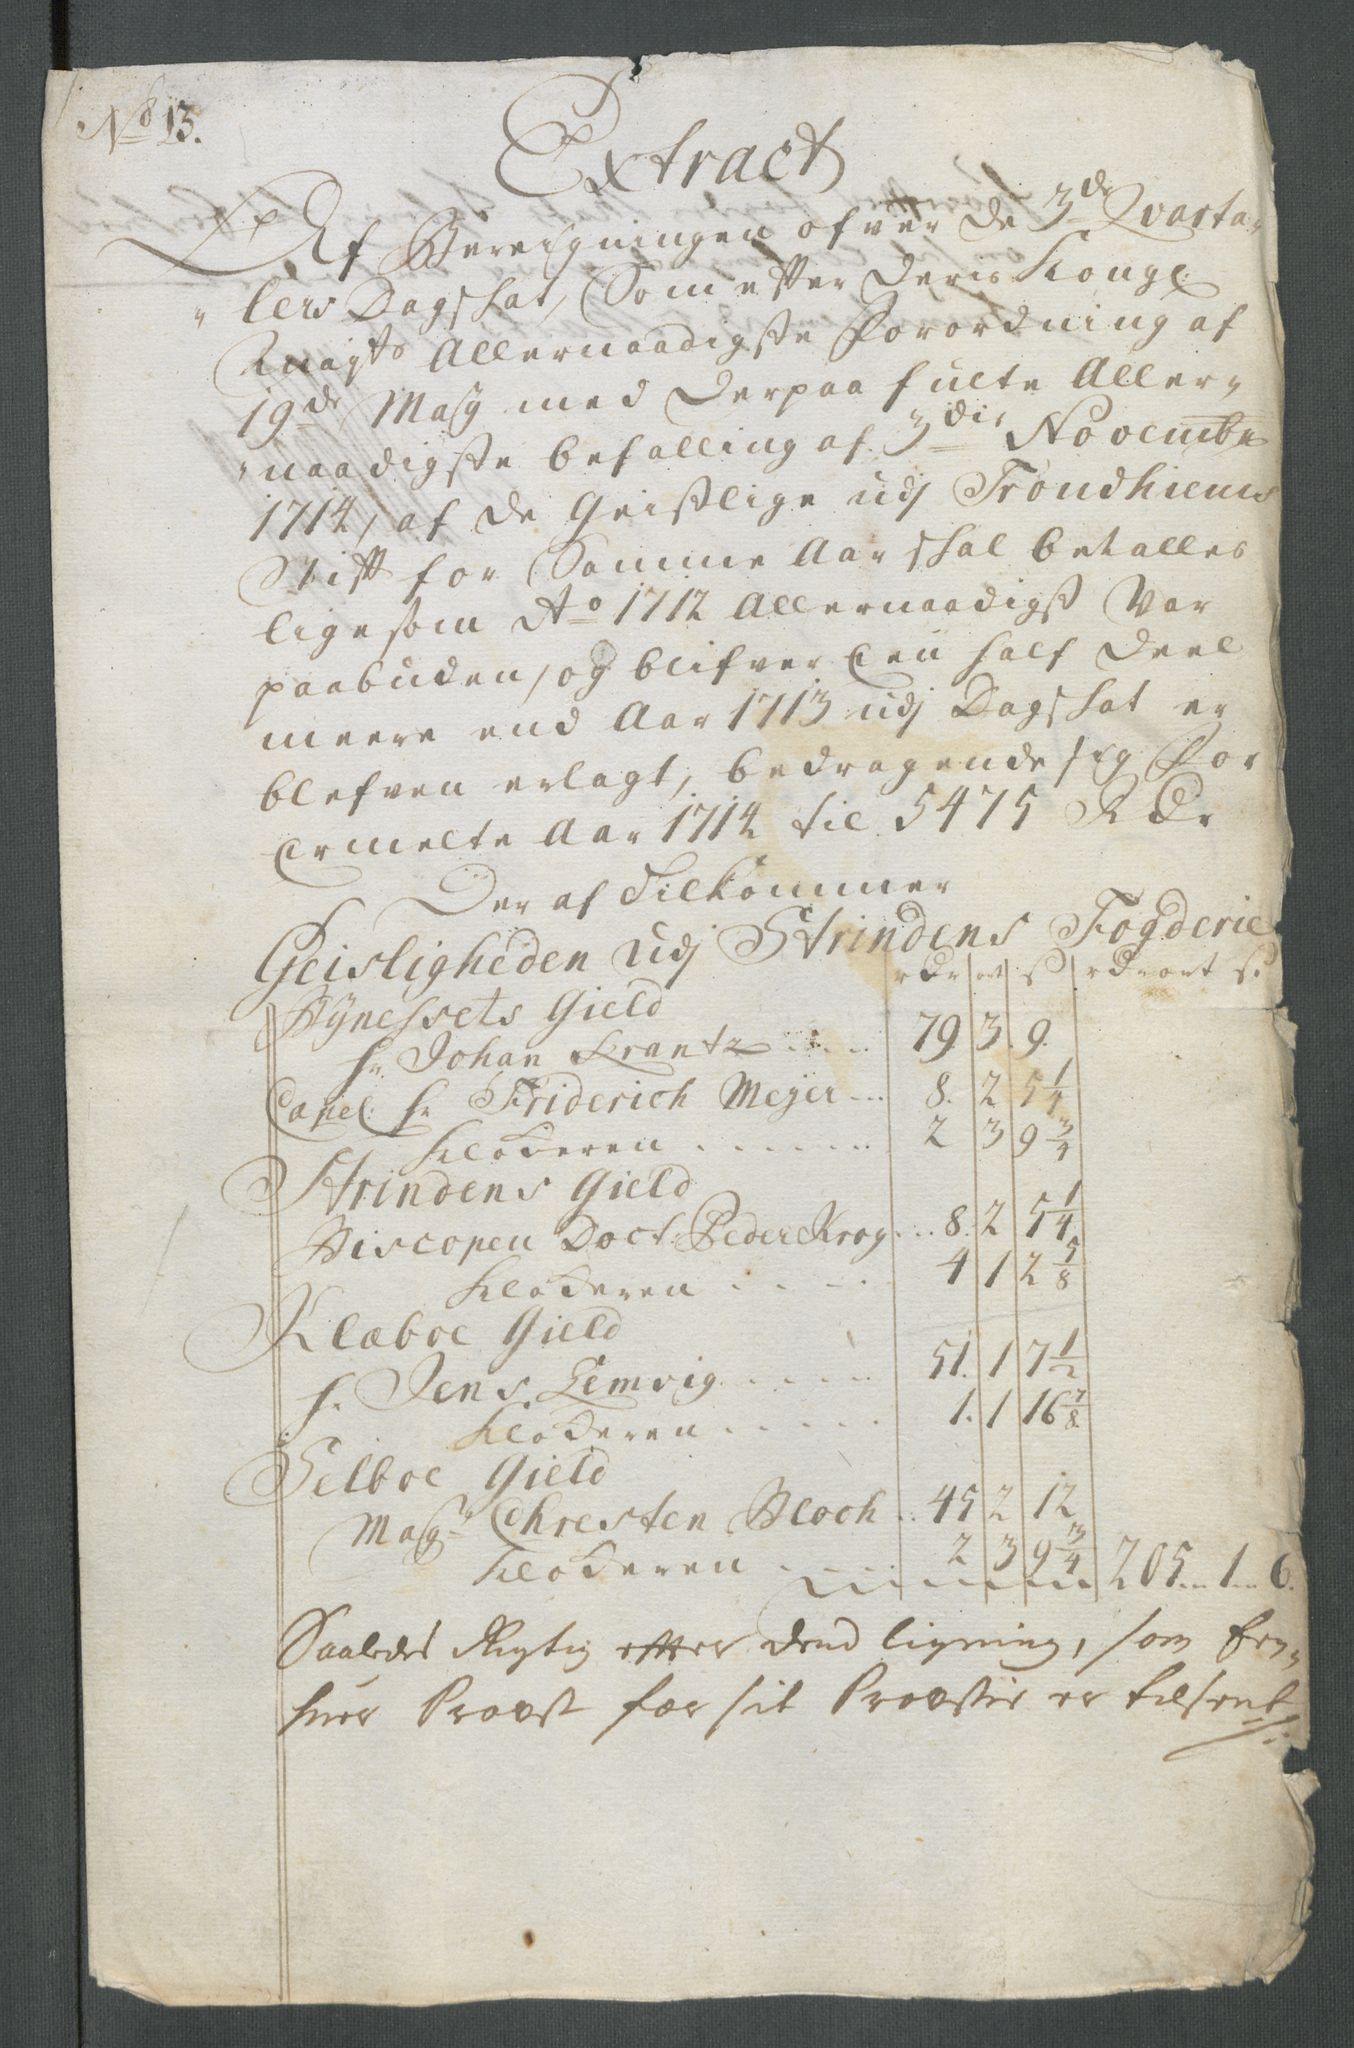 No 13.
Extract
Af Beregningen ofver de 3de Qvarta-
lers Dagskat, som efter Deris Kongl.
Mayts Allernaadigste Forordning af
19de Maij med derpaa fulte Aller-
naadigste befalling af 3die Novembr
1714, af de Geistlige udj Trondhiems
Stift for Samme Aar skal betalles
ligesom Ao 1712 Allernaadigst Var
paabuden, og blifver Een half Deel
meere end Aar 1713 udj Dagskat er
blefven erlagt, bedragende sig for
Ermelte Aar 1714 til 5475 Rdr
Der af Tilkommer
Geisligheden Udj Strindens Fogderie
rdr ort s rdr ort s.
Bynessets Gield
hr Johan Krantz ..... 79. 3. 9.
Capel. hr Friderich Meyer ... 8. 2 5 1/4
Klockeren ....... 2 3 9 3/4
Strindens Gield
Biscopen Doct. Peder Krog ... 8. 2 5 1/4
Klockeren ..... 4 1 2 5/8
Klæboe Gield
hr. Jens Lemvig ..... 51. 1 7 1/2
Klockeren ..... 1. 1 16 7/8
Selboe Gield
Magr Christen Bloch .. 45 2 12
Klockeren ..... 2 3 9 3/4 205 .. 1 .. 6.
Saaledes Rigtig efter dend ligning, som En-
huer Provst for sit Provstie er tilsent